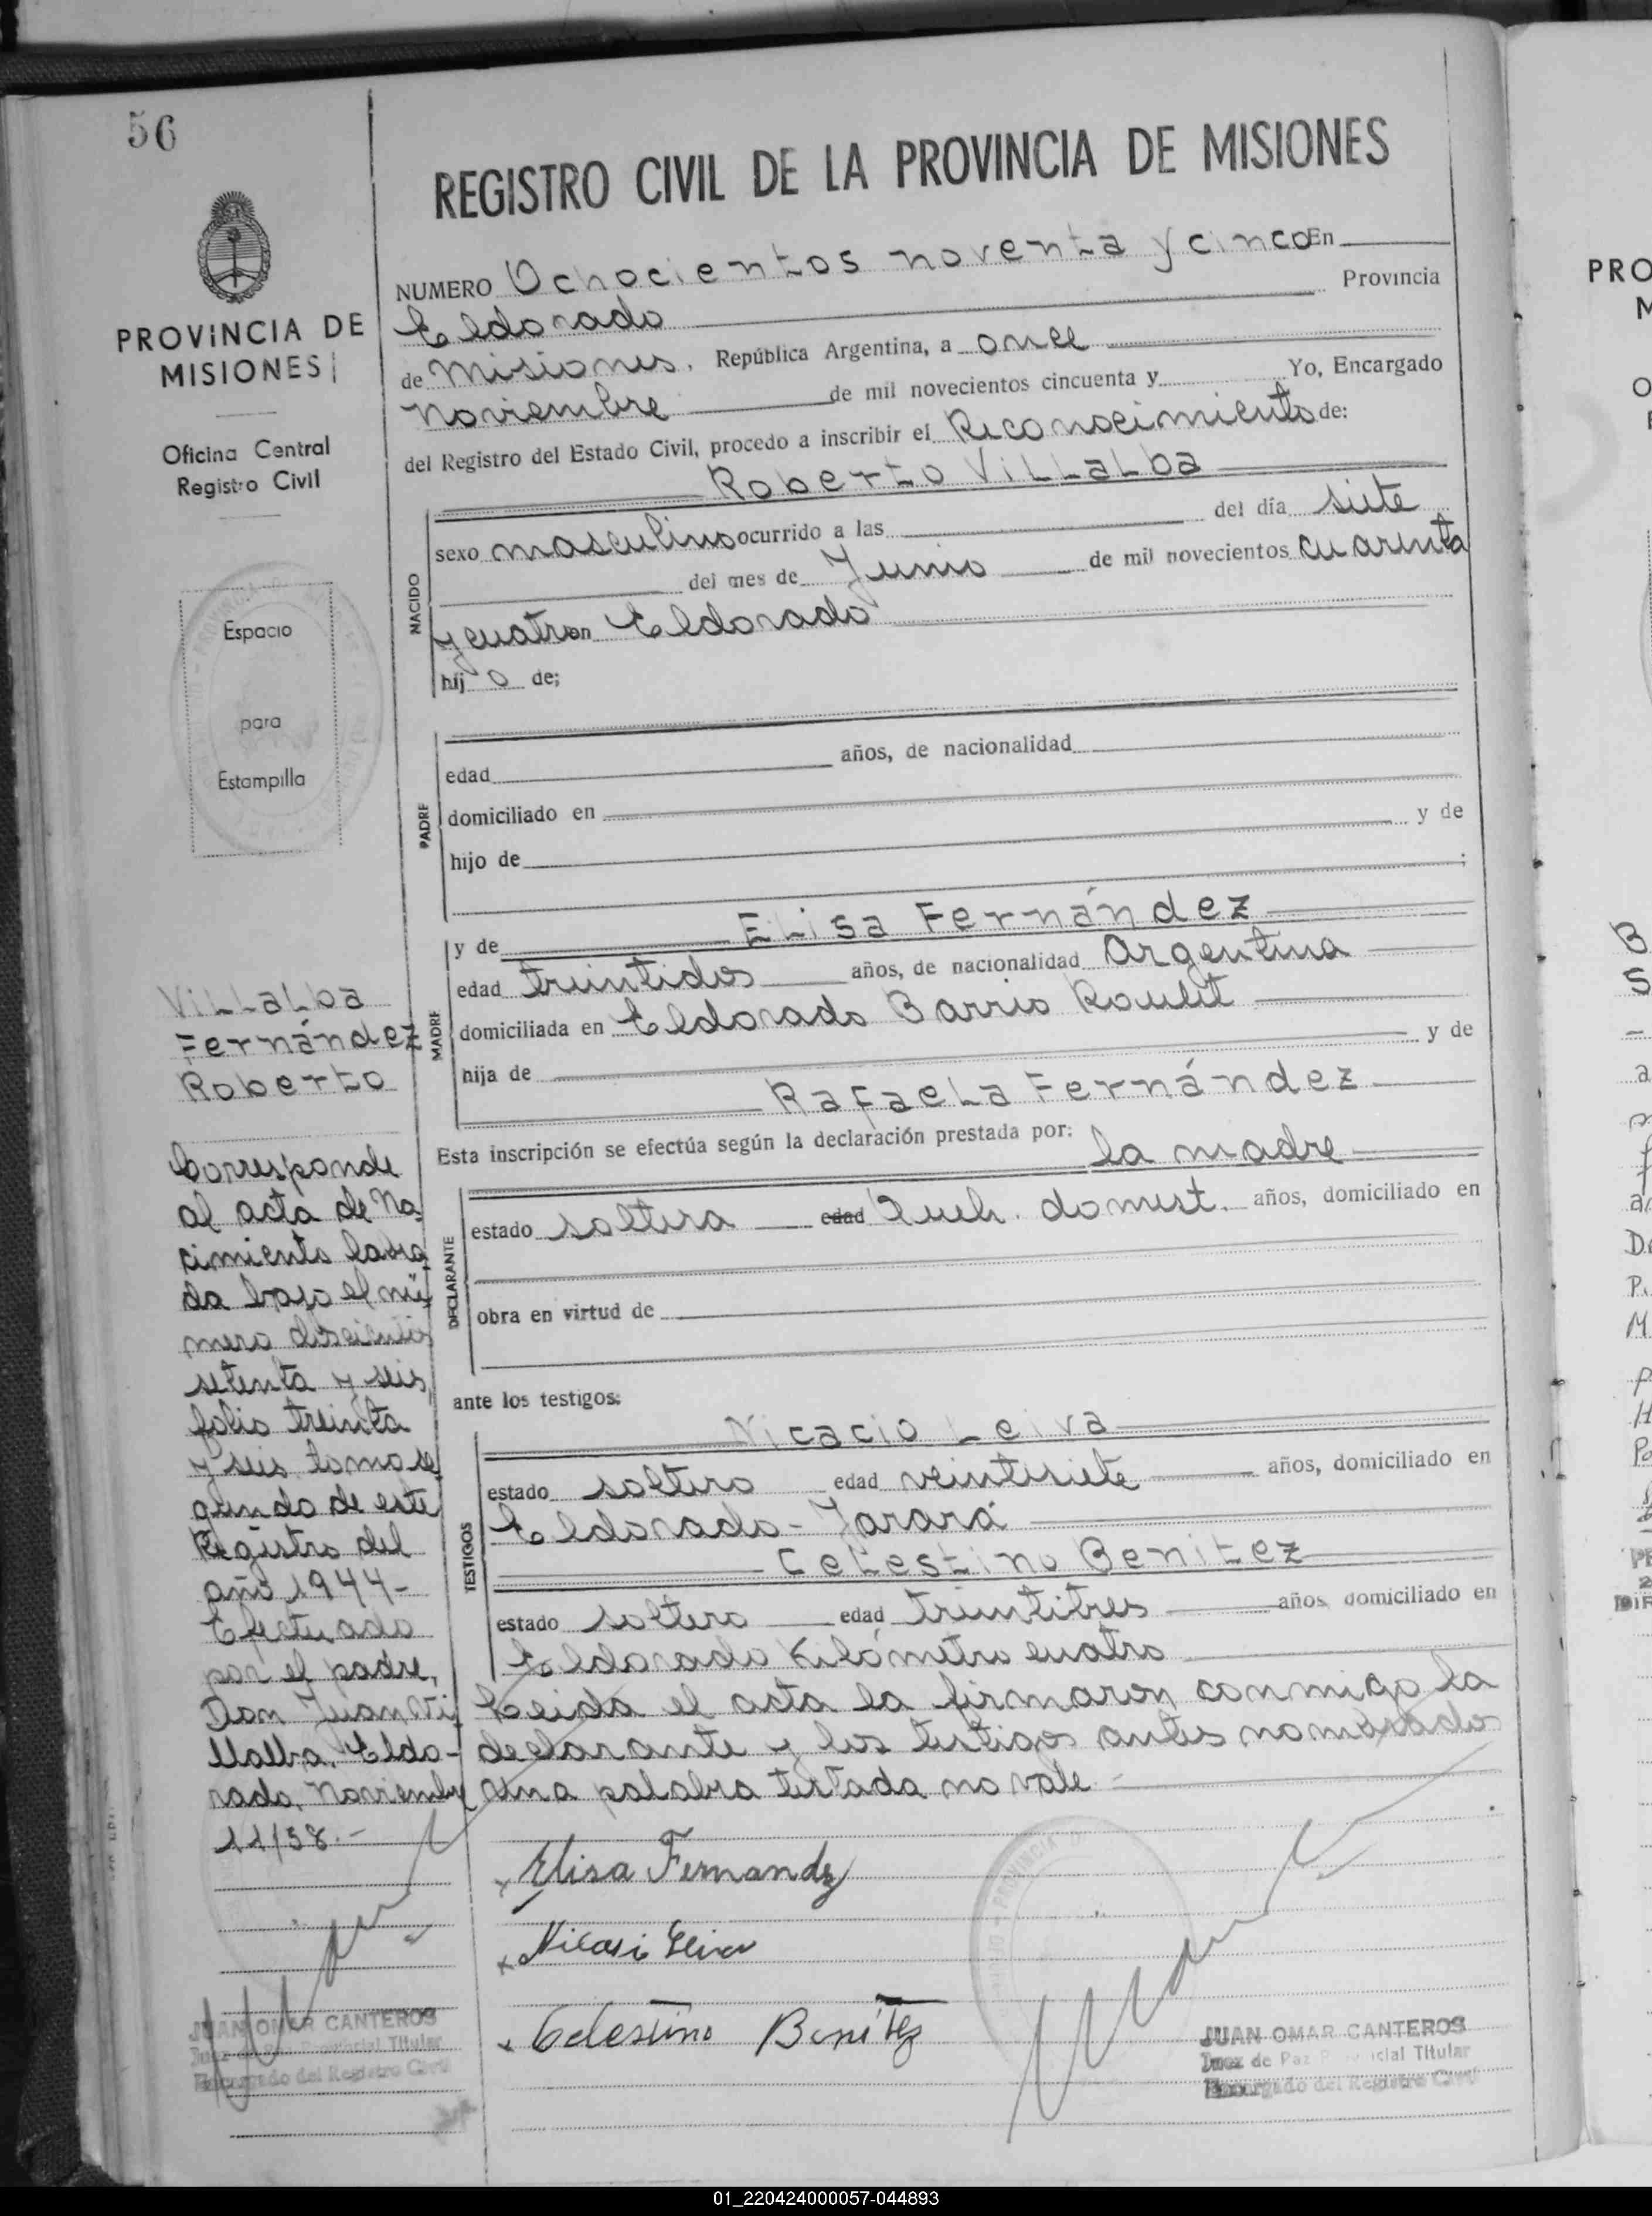 56
REGISTRO CIVIL DE LA PROVINCIA DE MISIONES
NUMERO Ochocientos noventa y cinco En
Eldorado Provincia
de Misiones. República Argentina, a once
Noviembre de mil novecientos cincuenta y Yo, Encargado
del Registro del Estado Civil, procedo a inscribir el Reconocimiento de:
Roberto Villalba
NACIDO
sexo masculino ocurrido a las del día siete
del mes de Junio de mil novecientos cuarenta
y cuatro en Eldorado
hijo de;
PADRE
edad años, de nacionalidad
domiciliado en
hijo de y de
;
MADRE
y de Elisa Fernández
edad treintidos años, de nacionalidad Argentina
domiciliada en Eldorado Barrio Roulet
hija de y de
Rafaela Fernández
Esta inscripción se efectúa según la declaración prestada por:
la madre
DECLARANTE
estado soltera edad Queh. domest. años, domiciliado en
obra en virtud de
ante los testigos:
TESTIGOS
Nicacio Leiva
estado soltero edad veintisiete años, domiciliado en
Eldorado - Yarará
Celestino Benitez
estado soltero edad treintitres años, domiciliado en
Eldorado Kilómetro cuatro
Leida el acta la firmaron conmigo la
declarante y los testigos antes nombrados
una palabra testada no vale -
Elisa Fernandez
Nicasi Leiva
Celestino Benítez
JUAN OMAR CANTEROS
Juez de Paz Provincial Titular
Encargado del Registro Civil
PROVINCIA DE
MISIONES
Oficina Central
Registro Civil
Espacio
para
Estampilla
Villalba
Fernández
Roberto
Corresponde
al acta de Na
cimiento labra
da bajo el nú
mero doscientos
setenta y seis
folio treinta
y seis tomo se
gundo de este
Registro del
año 1944-
Efectuado
por el padre,
Don Juan Vi
llalba. Eldo-
rado, Noviembre
11/58.-
JUAN OMAR CANTEROS
Juez de Paz Provincial Titular
Encargado del Registro Civil
PRO
01_220424000057-044893